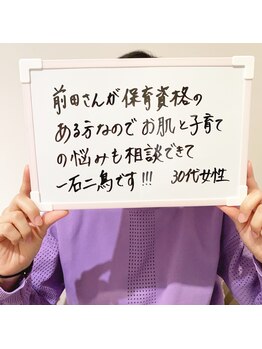 前田さんが保育資格の
ある方なのでお肌と子育て
の悩みも相談できて
一石二鳥です!!! 30代女性